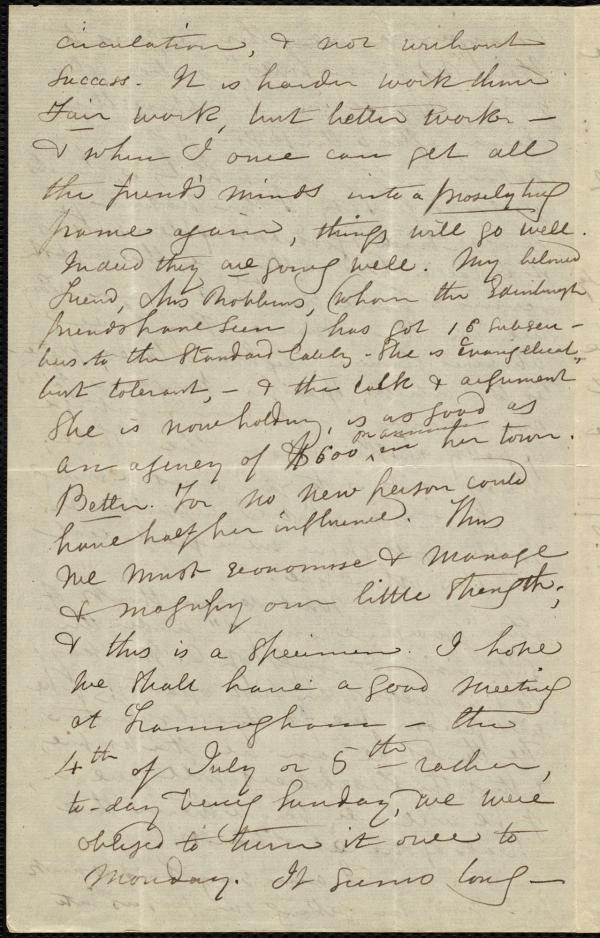 circulation, & not without
success. It is harder work than
Fair work, but better work —
& when I once can get all
the friends minds into a proselyting
frame again, things will go well.
Indeed they are going well. My beloved
friend, Mrs Robbins, (whom the Edinburgh
friends have seen) has got 18 subscri-
bers to the Standard lately - She is Evangelical,
but tolerant, - & the talk & argument
She is now holding, is as good as
an agency of $600 per annum in her town.
Better. For no new person could
have half her influence. Thus
we must economise & manage
& magnify our little strength;
& this is a specimen. I hope
we shall have a good meeting
at Framingham — the
4th of July or 5th rather,
to-day being Sunday, we were
obliged to turn it over to
Monday. It seems long —